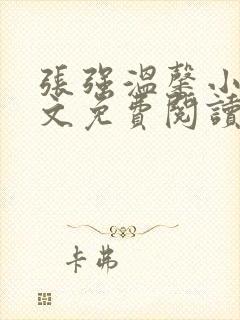 張強溫馨小
文免費閱讀
卡弗